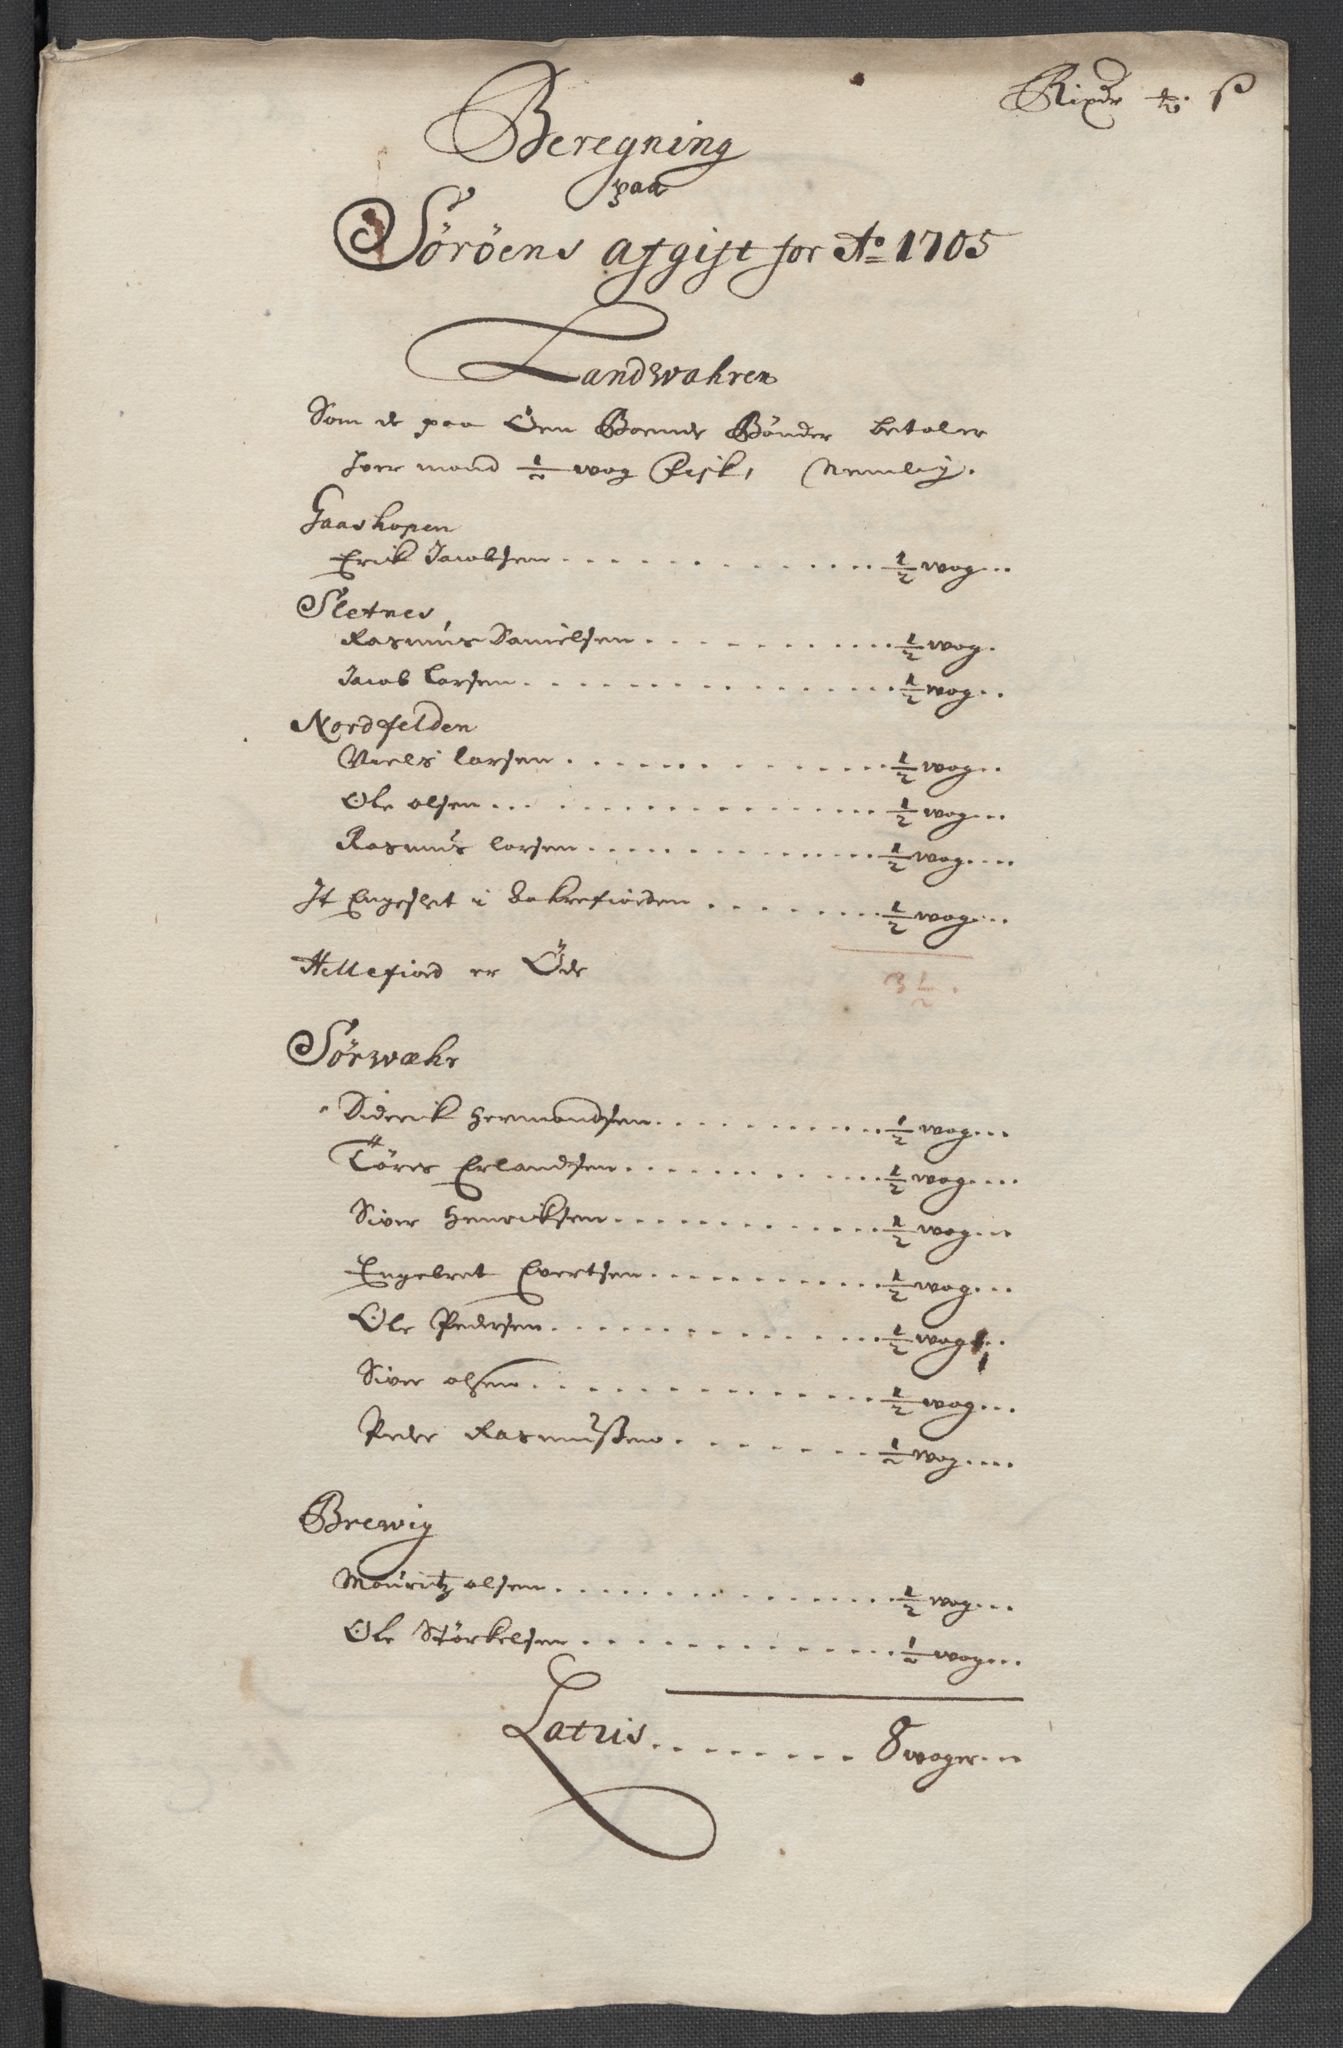 Rixdr ß
Beregning
paa
Söröens afgift for Ao 1705
Landwahren
Som de paa Öen Boende Bönder betaler
hver mand 1/2 wog Fisk, Nemlig.
Gaashopen
Erick Jacobsen 1/2 wog
Sletnes
Rasmus Danielsen 1/2 wog
Jacob Larsen 1/2 wog
Nordfelden
Niels Larsen 1/2 wog
Ole olsen 1/2 wog
Rasmus Larsen 1/2 wog
It Engeslet i 1/2 wog
Hellefiord er Öde 3 1/2
Sörwæhr
Diderick Hermandsen 1/2 wog
Töres Erlandsen 1/2 wog
Siver Henricksen 1/2 wog
Engebret Evertsen 1/2 wog
Ole Pedersen 1/2 wog
Siver olsen 1/2 wog
Peder Rasmussen 1/2 wog
Brewig
Mouritz olsen 1/2 wog
Ole Störkelsen 1/2 wog
Latus 8 woger